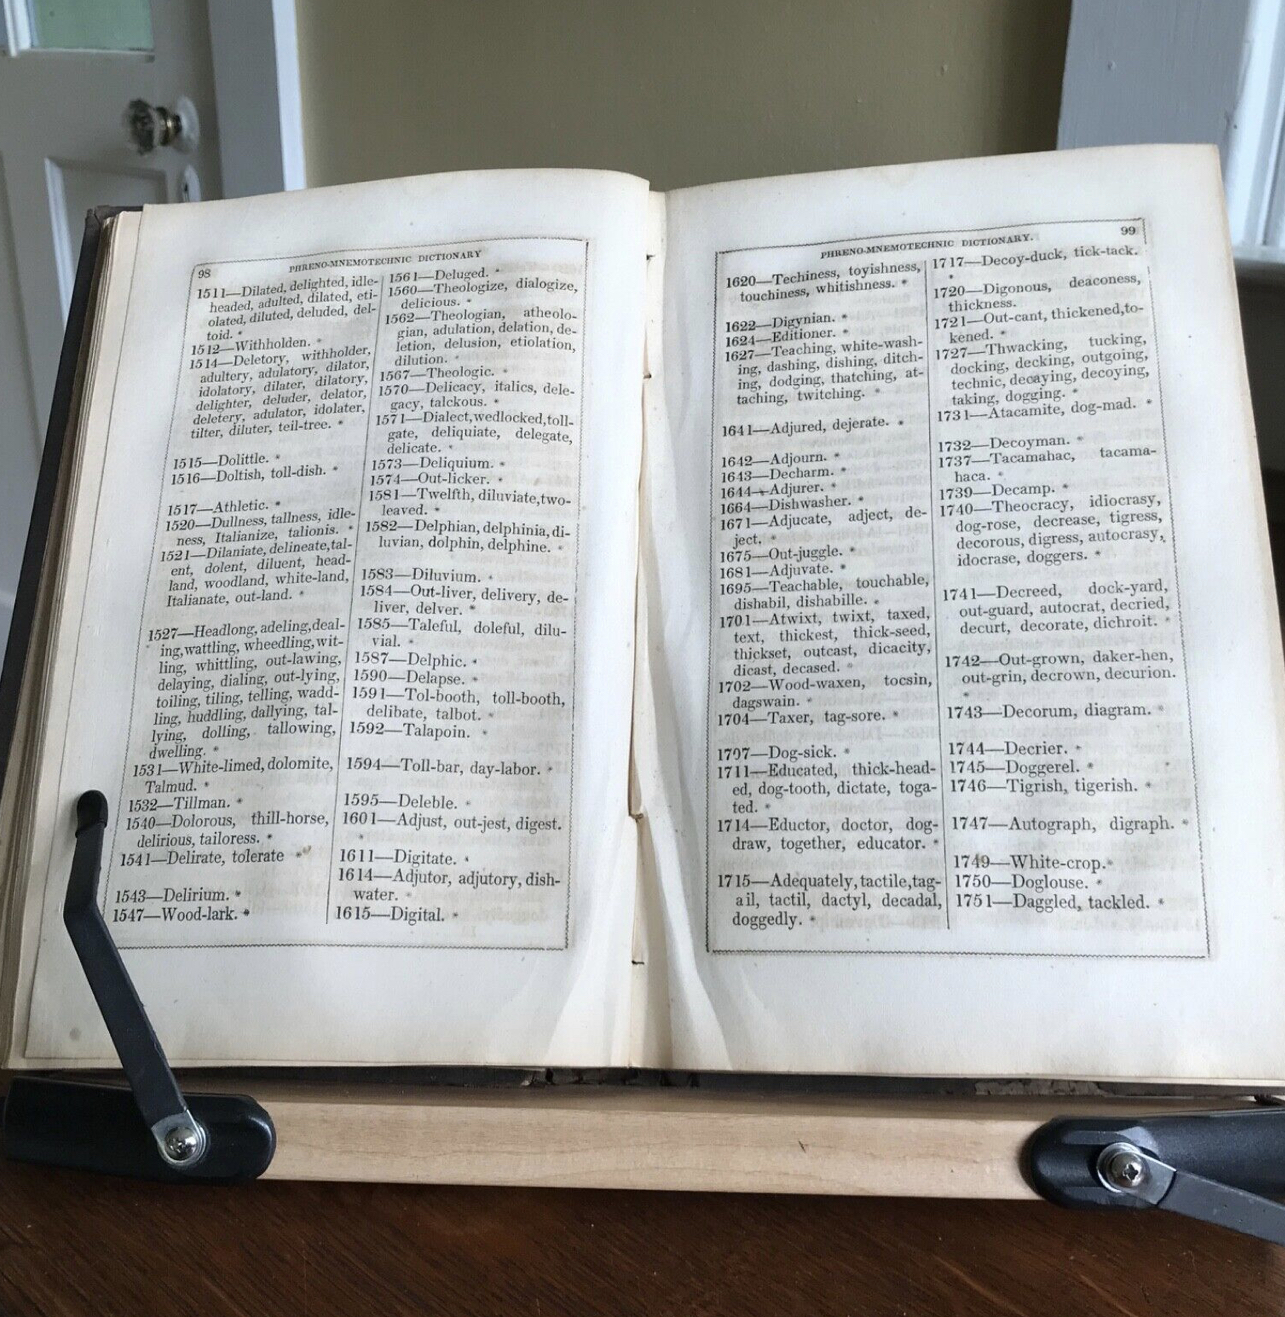 98
PHRENO-MNEMOTECHNIC DICTIONARY
1511—Dilated, delighted, idle-
headed, adulted, dilated, eti-
olated, diluted, deluded, del-
toid. *
1512—Withholden. *
1514—Deletory, withholder,
adultery, adulatory, dilator,
idolatory, dilater, dilatory,
delighter, deluder, delator,
deletery, adulator, idolater,
tilter, diluter, teil-tree. *
1515—Dolittle. *
1516—Doltish, toll-dish. *
1517—Athletic. *
1520—Dullness, tallness, idle-
ness, Italianize, talionis. *
1521—Dilaniate, delineate, tal-
ent, dolent, diluent, head-
land, woodland, white-land,
Italianate, out-land. *
1527—Headlong, adeling, deal-
ing, wattling, wheedling, wit-
ling, whittling, out-lawing,
delaying, dialing, out-lying,
toiling, tiling, telling, wadd-
ling, huddling, dallying, tal-
lying, dolling, tallowing,
dwelling. *
1531—White-limed, dolomite,
Talmud. *
1532—Tillman. *
1540—Dolorous, thill-horse,
delirious, tailoress. *
1541—Delirate, tolerate *
1543—Delirium. *
1547—Wood-lark. *
1561—Deluged. *
1560—Theologize, dialogize,
delicious. *
1562—Theologian, atheolo-
gian, adulation, delation, de-
letion, delusion, etiolation,
dilution. *
1567—Theologic. *
1570—Delicacy, italics, dele-
gacy, talckous. *
1571—Dialect, wedlocked, toll-
gate, deliquiate, delegate,
delicate. *
1573—Deliquium. *
1574—Out-licker. *
1581—Twelfth, diluviate, two-
leaved. *
1582—Delphian, delphinia, di-
luvian, dolphin, delphine. *
1583—Diluvium. *
1584—Out-liver, delivery, de-
liver, delver. *
1585—Taleful, doleful, dilu-
vial. *
1587—Delphic. *
1590—Delapse. *
1591—Tol-booth, toll-booth,
delibate, talbot. *
1592—Talapoin. *
1594—Toll-bar, day-labor. *
1595—Deleble. *
1601—Adjust, out-jest, digest.
*
1611—Digitate. *
1614—Adjutor, adjutory, dish-
water. *
1615—Digital. *
PHRENO-MNEMOTECHNIC DICTIONARY.
99
1620—Techiness, toyishness,
touchiness, whitishness. *
1622—Digynian. *
1624—Editioner. *
1627—Teaching, white-wash-
ing, dashing, dishing, ditch-
ing, dodging, thatching, at-
taching, twitching. *
1641—Adjured, dejerate. *
1642—Adjourn. *
1643—Decharm. *
1644—Adjurer. *
1664—Dishwasher. *
1671—Adjucate, adject, de-
ject, *
1675—Out-juggle. *
1681—Adjuvate. *
1695—Teachable, touchable,
dishabil, dishabille. *
1701—Atwixt, twixt, taxed,
text, thickest, thick-seed,
thickset, outcast, dicacity,
dicast, decased. *
1702—Wood-waxen, tocsin,
dagswain. *
1704—Taxer, tag-sore. *
1707—Dog-sick. *
1711—Educated, thick-head-
ed, dog-tooth, dictate, toga-
ted. *
1714—Eductor, doctor, dog-
draw, together, educator. *
1715—Adequately, tactile, tag-
ail, tactil, dactyl, decadal,
doggedly. *
1717—Decoy-duck, tick-tack.
*
1720—Digonous, deaconess,
thickness. *
1721—Out-cant, thickened, to-
kened. *
1727—Thwacking, tucking,
docking, decking, outgoing,
technic, decaying, decoying,
taking, dogging. *
1731—Atacamite, dog-mad. *
1732—Decoyman. *
1737—Tacamahac, tacama-
haca. *
1739—Decamp. *
1740—Theocracy, idiocrasy,
dog-rose, decrease, tigress,
decorous, digress, autocrasy,
idocrase, doggers. *
1741—Decreed, dock-yard,
out-guard, autocrat, decried,
decurt, decorate, dichroit. *
1742—Out-grown, daker-hen,
out-grin, decrown, decurion.
*
1743—Decorum, diagram. *
1744—Decrier. *
1745—Doggerel. *
1746—Tigrish, tigerish. *
1747—Autograph, digraph. *
1749—White-crop. *
1750—Doglouse. *
1751—Daggled, tackled. *